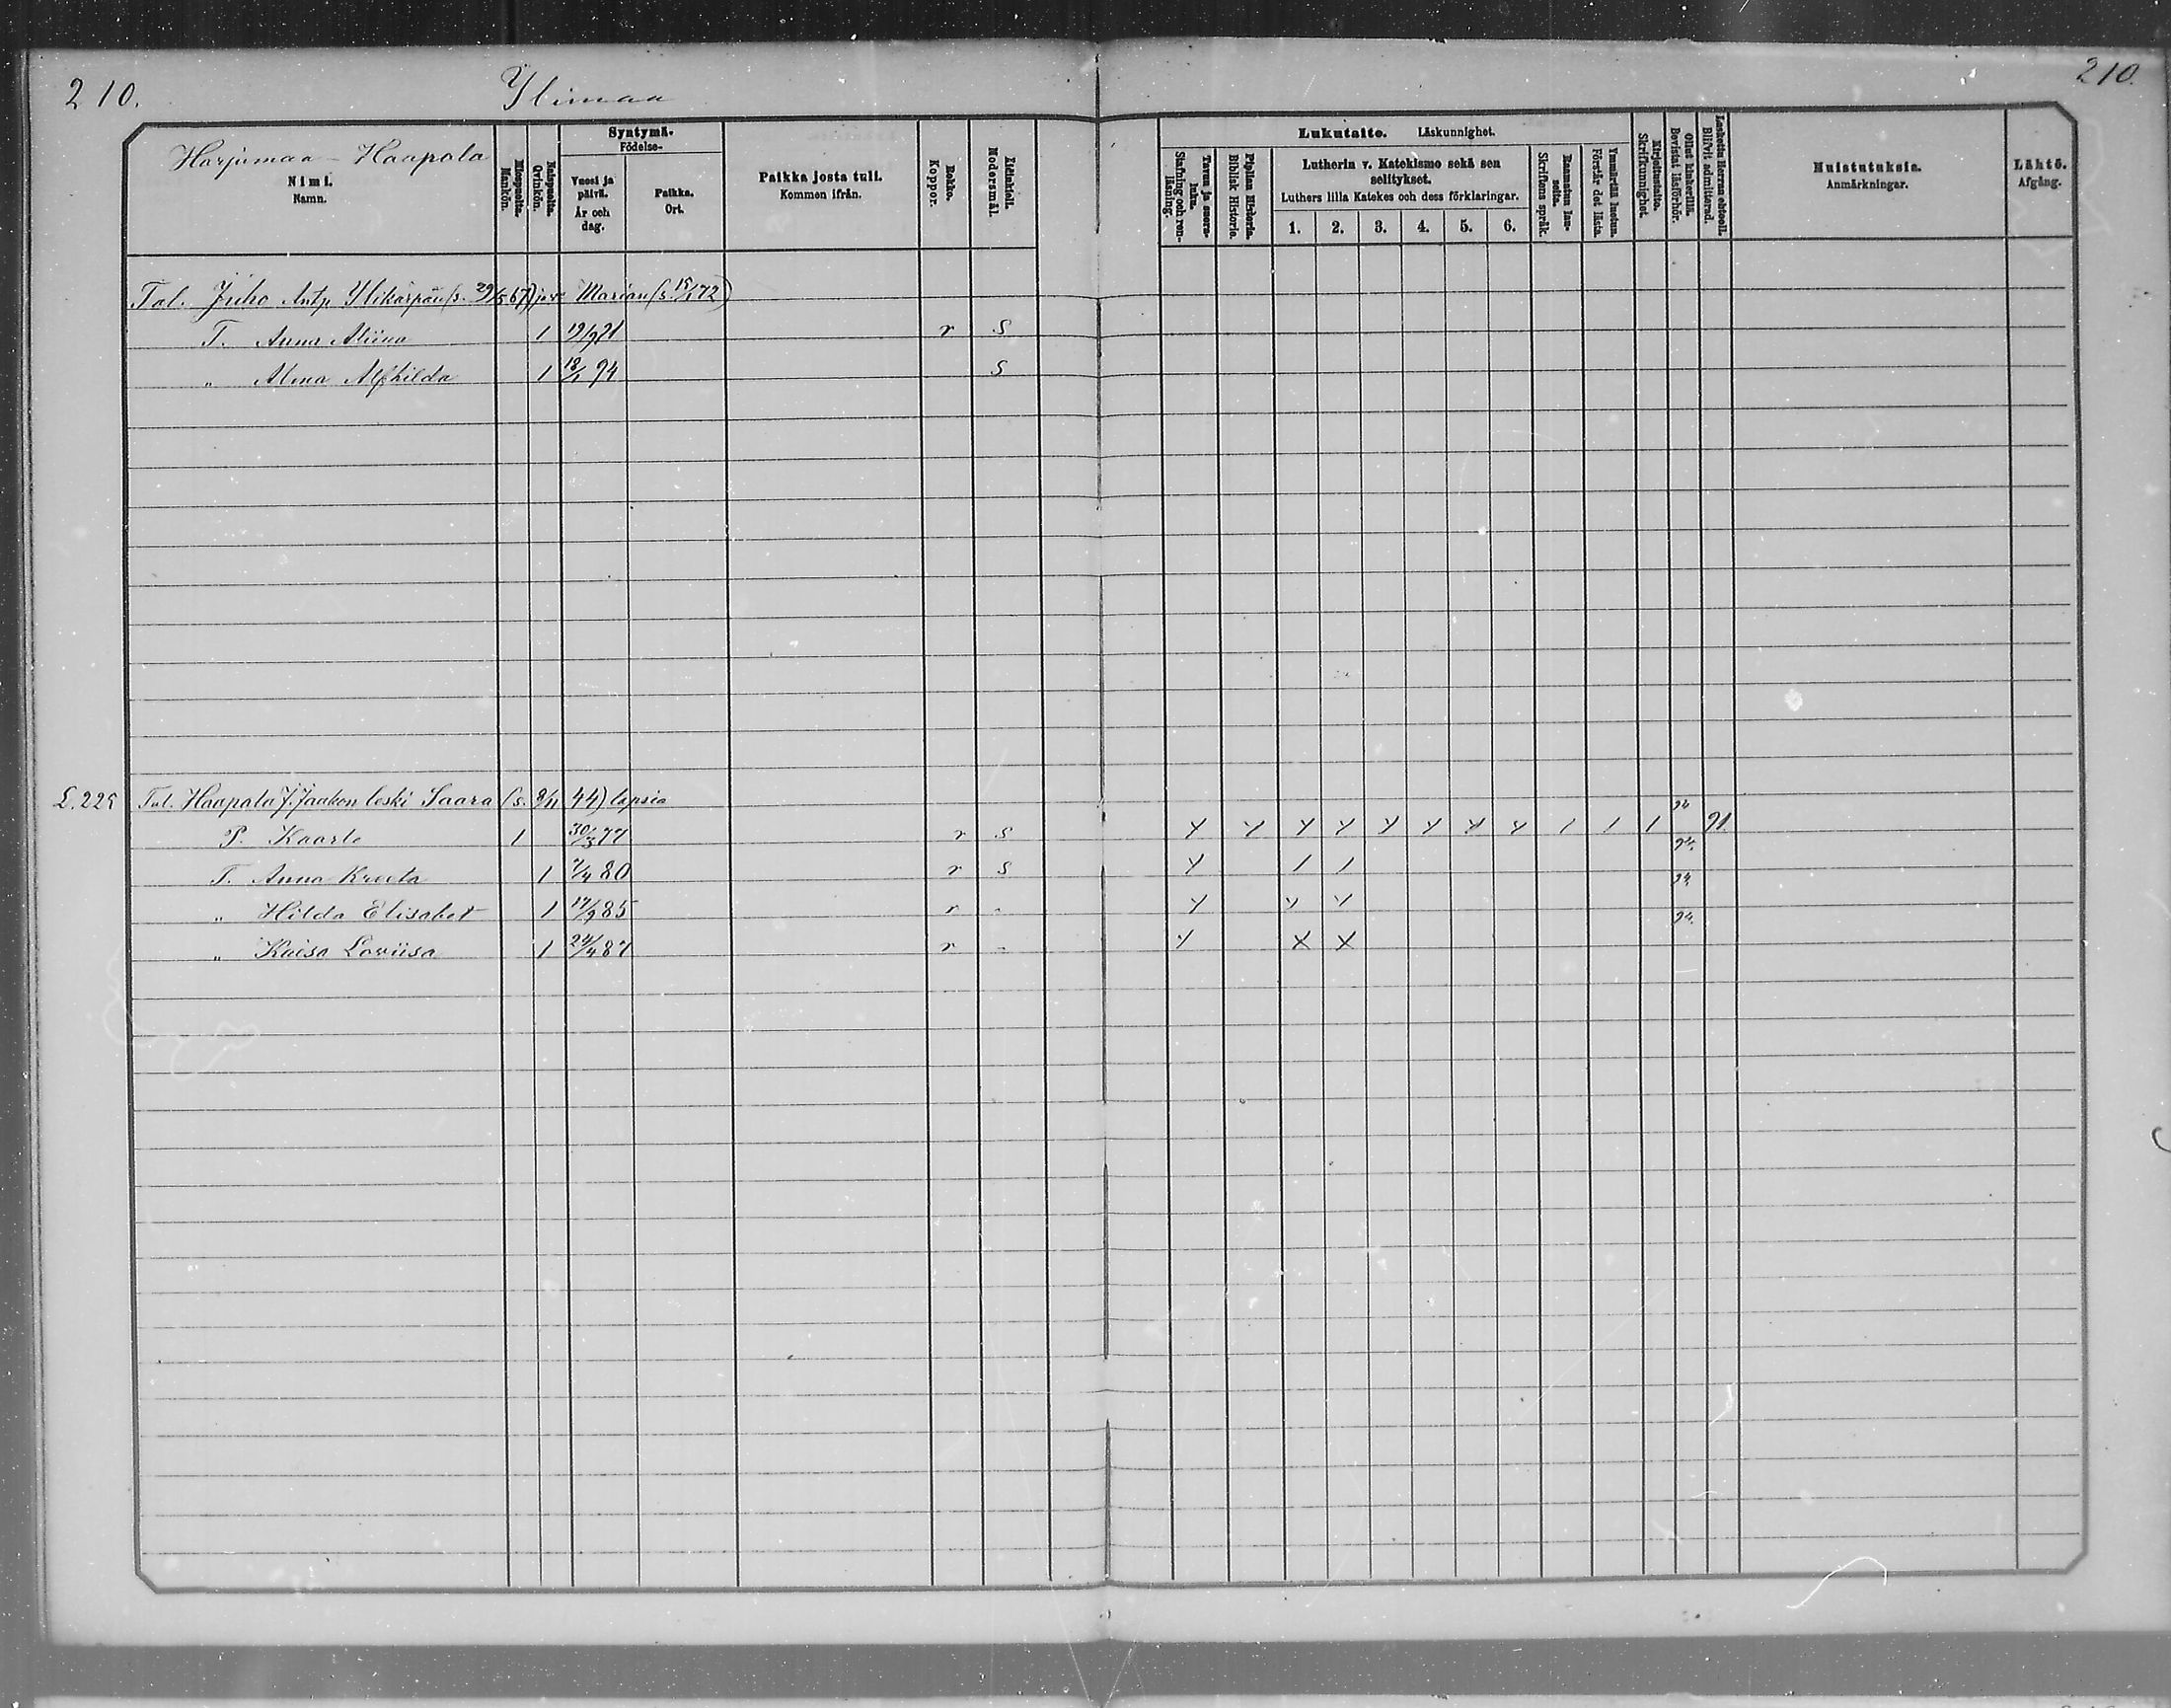 210. Ylimaa 210.
Harjumaa - Haapala
Nimi.
Namn.
Miespuolia.
Mankön.
Naispuolia.
Qvinkön.
Syntymä-
Födelse-
Vuosi ja päivä.
År och dag.
Paikka.
Ort.
Paikka josta tuli.
Kommen ifrån.
Rokko.
Koppor.
Äidinkieli.
Modersmål.
Lukutaito. Läskunnighet.
Tavuu ja suora-luku.
Stafning och ren-läsning.
Piplian Historia.
Biblisk Historia.
Lutherin v. Katekismo sekä sen
selitykset.
Luthers lilla Katekes och dess förklaringar.
1. 2. 3. 4. 5. 6.
Raamatun lau-seita.
Skriftens språk.
Ymmärtää luetun.
Förstår det lästa.
Kirjoitustaito.
Skrifkunnighet.
Ollut lukuerillä.
Bevistat läsförhör.
Laskettu Herran ehtool.
Blifvit admitterad.
Muistutuksia.
Anmärkningar.
Lähtö.
Afgång.
Tal. Juho Antp. Ylikarpan (s. 29/5 67) ja v. Marian (s. 72)
T. Anna Aliina 1 r S
" Alma Mathilda 1 18/1 94 S
L. 229 Tal. Haapala J. Jaakon leski Saara (s. 9/11 44) lapsia
P. Kaarle 1 30/3 77 r S Y Y Y Y Y Y Y Y 1 1 1 94 91.
T. Anna Kreeta 1 7/4 80 r S Y 1 1 94.
" Hilda Elisabet 1 17/9 85 r " Y Y Y 94
" Kaisa Lowiisa 1 24/4 87 r " Y X X 94.